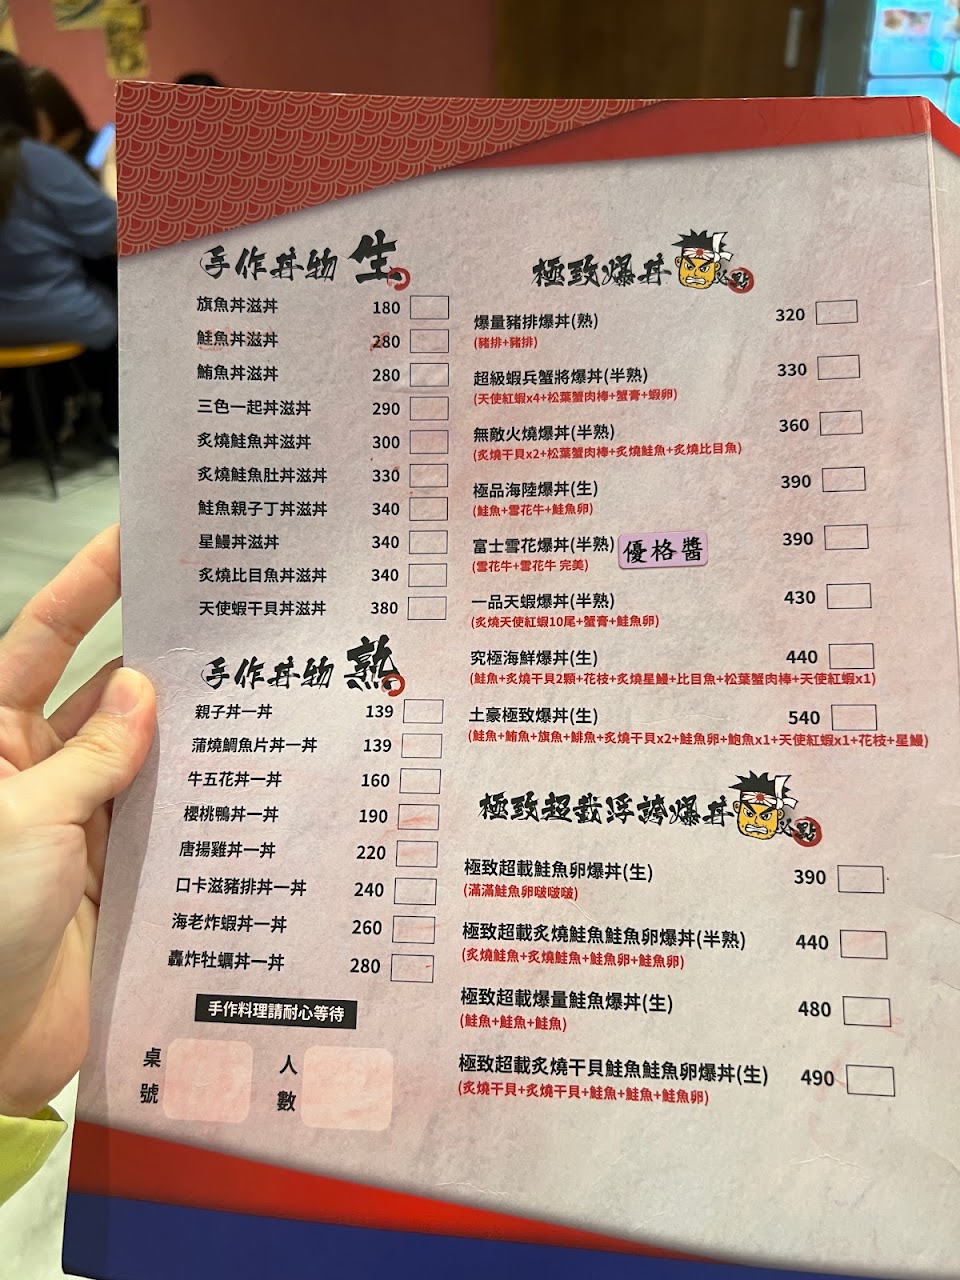 手作丼物 生
旗魚丼滋丼 180
鮭魚丼滋丼 280
鮪魚丼滋丼 280
三色一起丼滋丼 290
炙燒鮭魚丼滋丼 300
炙燒鮭魚肚丼滋丼 330
鮭魚親子丁丼滋丼 340
星鰻丼滋丼 340
炙燒比目魚丼滋丼 340
天使蝦干貝丼滋丼 380
手作丼物 熟
親子丼一丼 139
蒲燒鯛魚片丼一丼 139
牛五花丼一丼 160
櫻桃鴨丼一丼 190
唐揚雞丼一丼 220
口卡滋豬排丼一丼 240
海老炸蝦丼一丼 260
轟炸牡蠣丼一丼 280
手作料理請耐心等待
桌號
人數
極致爆丼 必點
爆量豬排爆丼(熟) 320
(豬排+豬排)
超級蝦兵蟹將爆丼(半熟) 330
(天使紅蝦x4+松葉蟹肉棒+蟹膏+蝦卵)
無敵火燒爆丼(半熟) 360
(炙燒干貝x2+松葉蟹肉棒+炙燒鮭魚+炙燒比目魚)
極品海陸爆丼(生) 390
(鮭魚+雪花牛+鮭魚卵)
富士雪花爆丼(半熟) 優格醬 390
(雪花牛+雪花牛 完美)
一品天蝦爆丼(半熟) 430
(炙燒天使紅蝦10尾+蟹膏+鮭魚卵)
究極海鮮爆丼(生) 440
(鮭魚+炙燒干貝2顆+花枝+炙燒星鰻+比目魚+松葉蟹肉棒+天使紅蝦x1)
土豪極致爆丼(生) 540
(鮭魚+鮪魚+旗魚+鯡魚+炙燒干貝x2+鮭魚卵+鮑魚x1+天使紅蝦x1+花枝+星鰻)
極致超載浮誇爆丼 必點
極致超載鮭魚卵爆丼(生) 390
(滿滿鮭魚卵啵啵啵)
極致超載炙燒鮭魚鮭魚卵爆丼(半熟) 440
(炙燒鮭魚+炙燒鮭魚+鮭魚卵+鮭魚卵)
極致超載爆量鮭魚爆丼(生) 480
(鮭魚+鮭魚+鮭魚)
極致超載炙燒干貝鮭魚鮭魚卵爆丼(生) 490
(炙燒干貝+炙燒干貝+鮭魚+鮭魚+鮭魚卵)